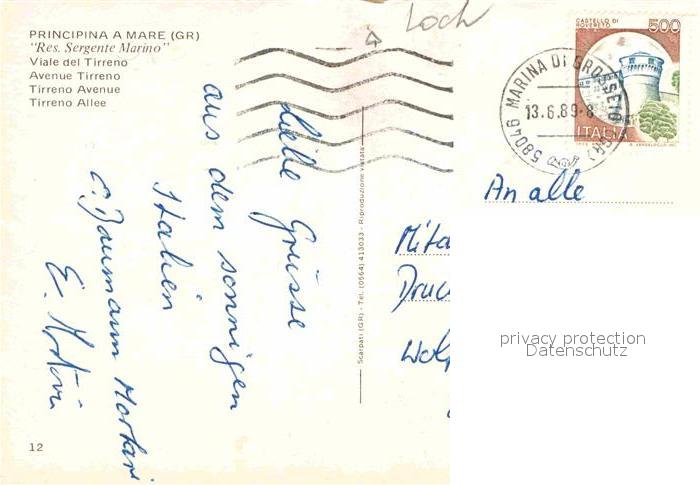 Loch
PRINCIPINA A MARE (GR)
"Res. Sergente Marino"
Viale del Tirreno
Avenue Tirreno
Tirreno Avenue
Tirreno Allee
CASTELLO DI
ROVERETO
500
ITALIA
58046 MARINA DI GROSSETO (GR)
13.6.89-8
Liebe Grüsse
aus dem sonnigen
Italien
E. Baumann Mortari
An alle
Mita
Druc
Scarpati (GR) - Tel. (0564) 413033 - Riproduzione vietata
privacy protection
Datenschutz
12